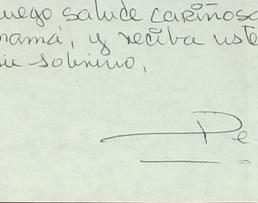 uego salude cariñosa
mamá, y reciba uste
su sobrino,
Pe